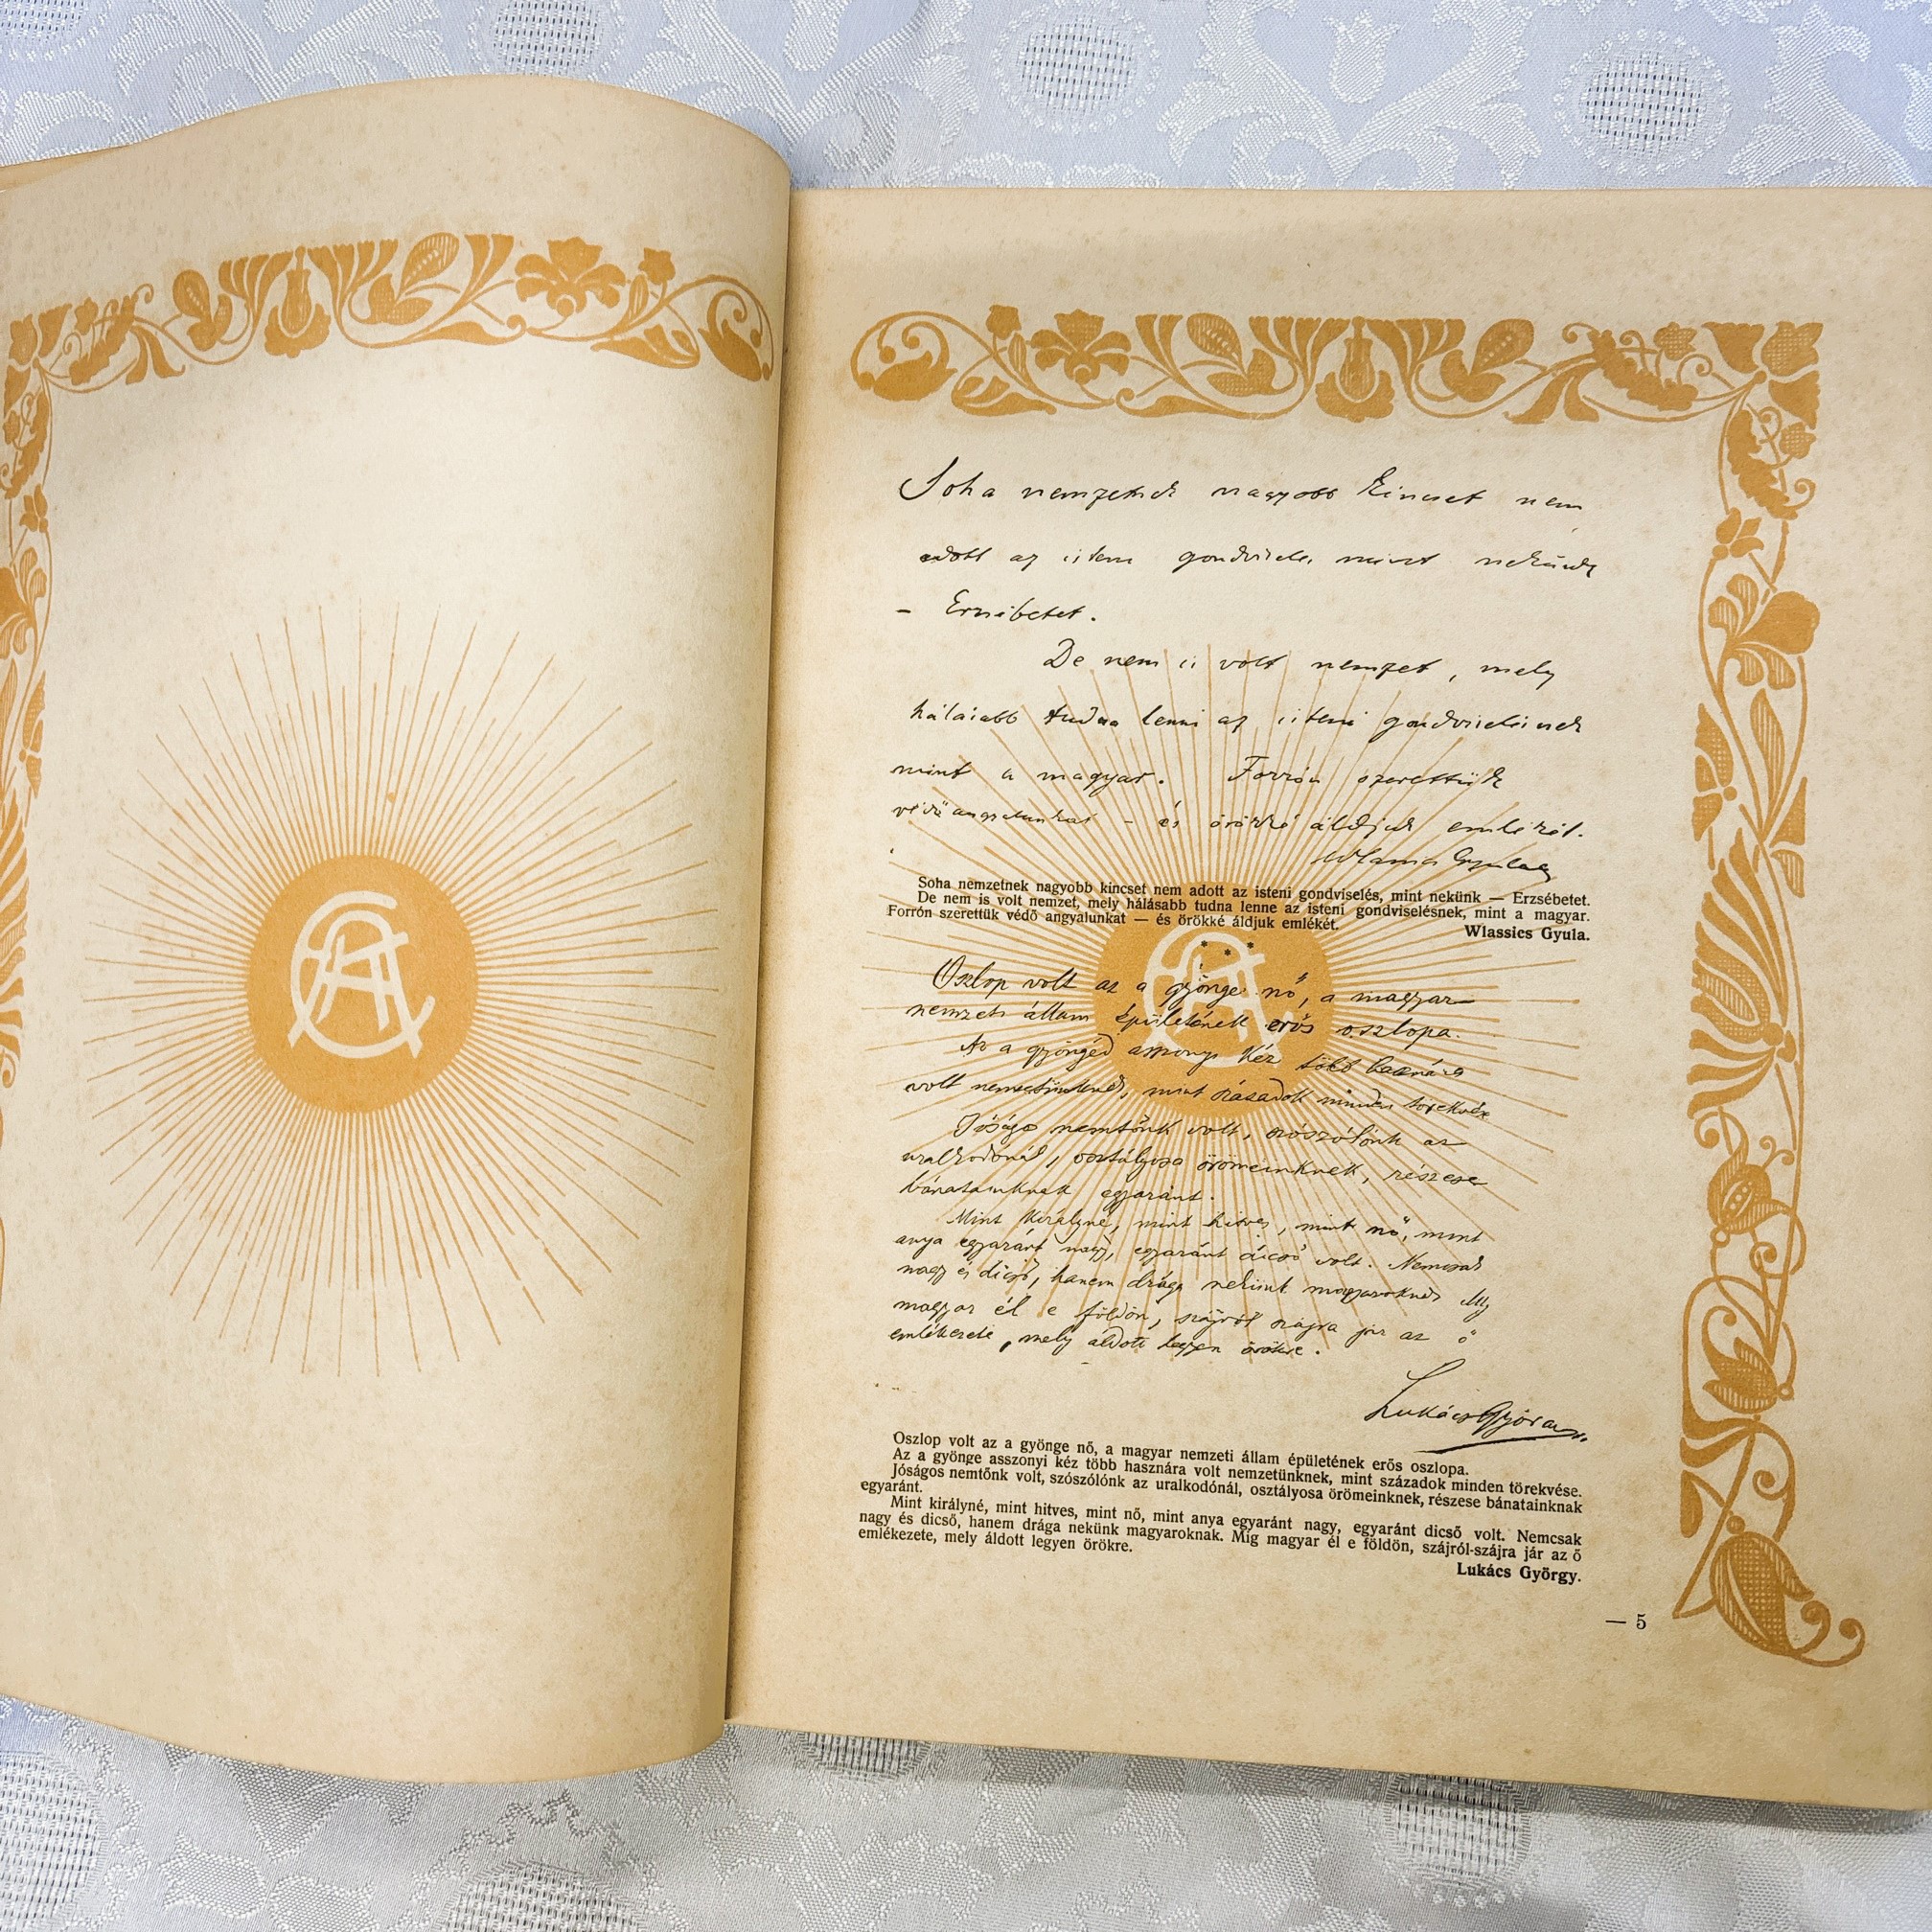 Soha nemzetnek nagyobb kincset nem
adott az isteni gondviselés, mint nekünk
– Erzsébetet.
De nem is volt nemzet, mely
hálásabb tudna lenni az isteni gondviselésnek
mint a magyar. Forrón szerettük
védő angyalunkat – és örökké áldjuk emlékét.
Wlassics Gyula
Soha nemzetnek nagyobb kincset nem adott az isteni gondviselés, mint nekünk — Erzsébetet.
De nem is volt nemzet, mely hálásabb tudna lenne az isteni gondviselésnek, mint a magyar.
Forrón szerettük védő angyalunkat — és örökké áldjuk emlékét.
Wlassics Gyula.
* * *
Oszlop volt az a gyönge nő, a magyar
nemzeti állam épületének erős oszlopa.
Az a gyöngéd asszonyi kéz több hasznára
volt nemzetünknek, mint századok minden törekvése
Jóságos nemtőnk volt, szószólónk az
uralkodónál, osztályosa örömeinknek, részese
bánatainknak egyaránt.
Mint királyné, mint hitves, mint nő, mint
anya egyaránt nagy, egyaránt dicső volt. Nemcsak
nagy és dicső, hanem drága nekünk magyaroknak. Míg
magyar él e földön, szájról szájra jár az ő
emlékezete, mely áldott legyen örökre.
Lukács György
Oszlop volt az a gyönge nő, a magyar nemzeti állam épületének erős oszlopa.
Az a gyönge asszonyi kéz több hasznára volt nemzetünknek, mint századok minden törekvése.
Jóságos nemtőnk volt, szószólónk az uralkodónál, osztályosa örömeinknek, részese bánatainknak
egyaránt.
Mint királyné, mint hitves, mint nő, mint anya egyaránt nagy, egyaránt dicső volt. Nemcsak
nagy és dicső, hanem drága nekünk magyaroknak. Míg magyar él e földön, szájról-szájra jár az ő
emlékezete, mely áldott legyen örökre.
Lukács György.
— 5